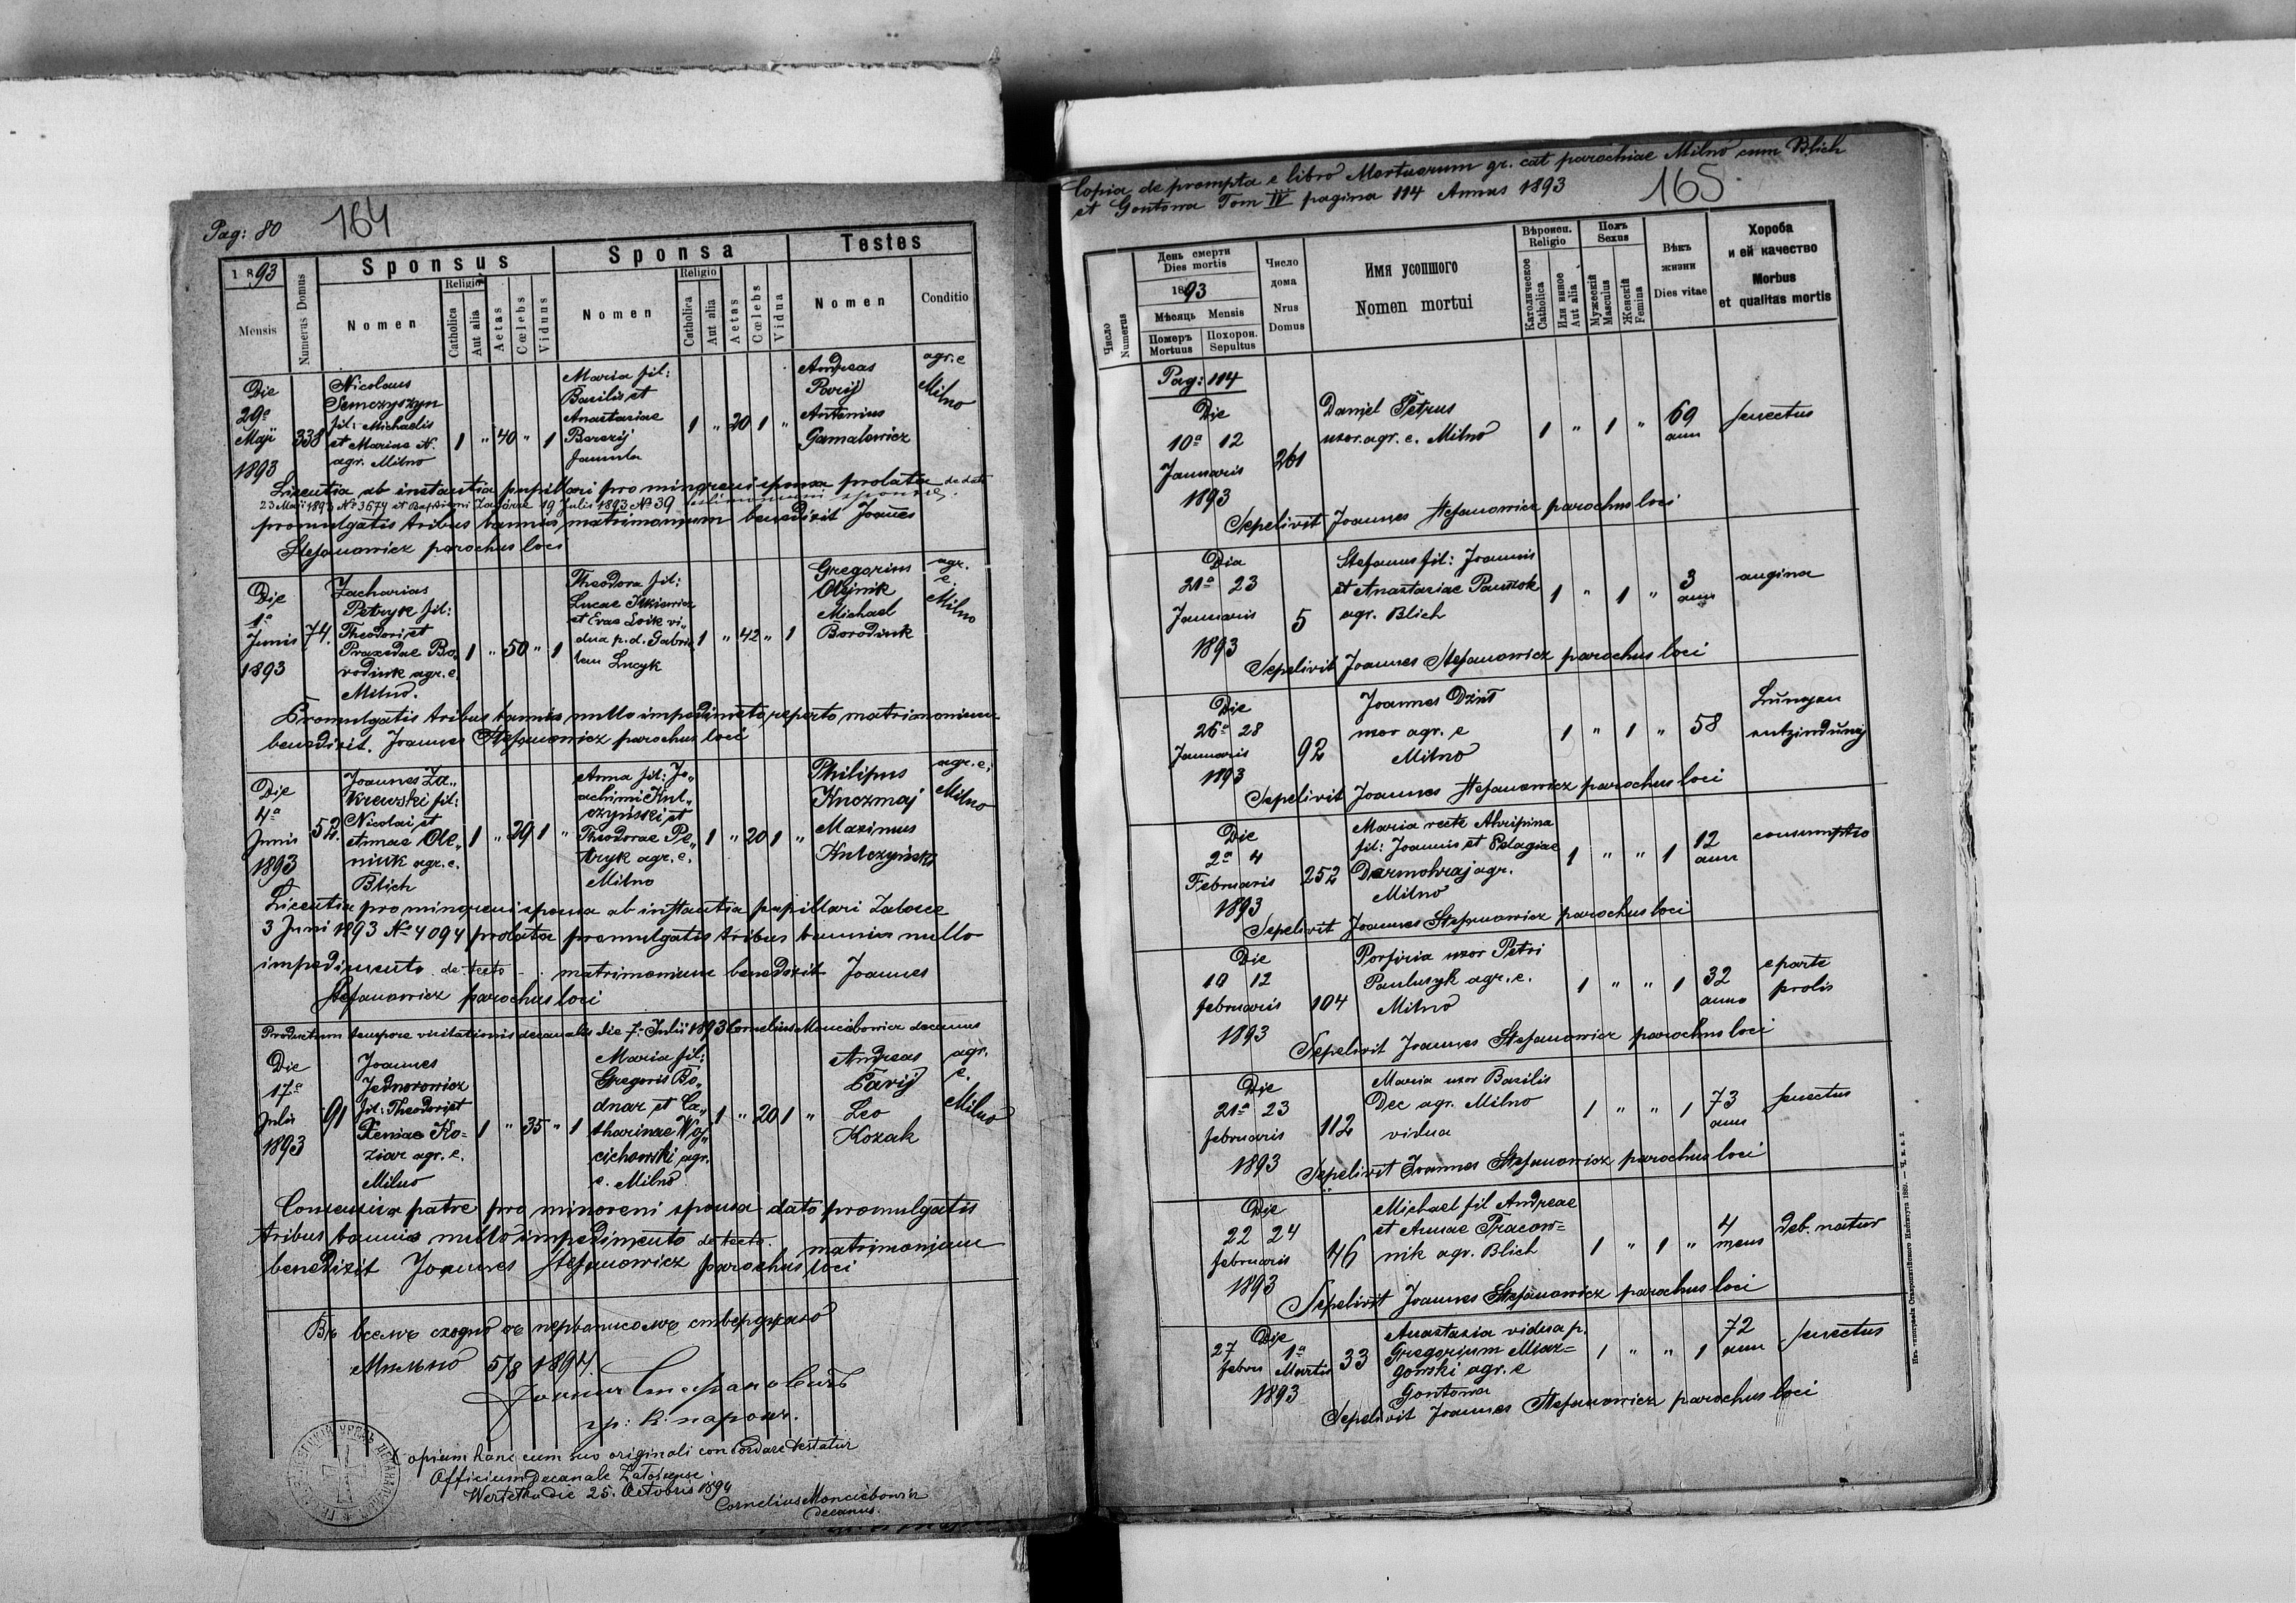 Pag: 80
164
1893
Mensis
Numerus Domus
Sponsus
Nomen
Religio
Catholica
Aut alia
Aetas
Cœlebs
Viduus
Sponsa
Nomen
Religio
Catholica
Aut alia
Aetas
Cœlebs
Vidua
Testes
Nomen
Conditio
Die
29ª
Maji
1893
338
Nicolaus
Semczyszyn
fil: Michaelis
et Mariae N.
agr. Milno
1 " 40 " 1
Maria fil:
Basilis et
Anastasiae
Berezij
famula
1 " 20 1 "
Andreas
Parij
Antonius
Gamalowicz
agr. e
Milno
Licentia ab instantia pupillari pro minoreni sponsa prolata de dato
23 Maji 1893 Nº 3679 et Baptismi Załoźce 19 Julis 1893 Nº 39 testimonium sponsae.
promulgatis tribus bannis matrimonium benedixit Joannes
Stefanowicz parochus loci
Die
1ª
Junis
1893
74.
Zacharias
Petryk fil:
Theodori et
Praxedae Bo„
rodiuk agr. e.
Milno.
1 " 50 " 1
Theodora fil:
Lucae Ilkiewicz
et Evae Loik vi„
dua p. d. Gabrie
lem Lucyk
1 " 42 " 1
Gregorius
Olijnik
Michael
Borodiuk
agr.
e.
Milno
Promulgatis tribus bannis nullo impedimeto reperto matrimonium
benedixit. Joannes Stefanowicz parochus loci
Die
4ª
Junis
1893
52.
Joannes Za„
krewski fil:
Nicolai et
Annae Ole„
niuk agr. e.
Blich
1 " 29 1 "
Anna fil: Jo„
achimi Kul„
czyński et
Theodorae Pe„
tryk agr. e.
Milno
1 " 20 1 "
Philipus
Kuczmaj
Maximus
Kulczyński
agr. e.
Milno
Licentia pro minoreni sponsa ab instantia pupillari Załoźce
3 Juni 1893 Nº 4094 prolata promulgatis tribus bannis nullo
impedimento detecto matrimonium benedixit Joannes
Stefanowicz parochus loci
Productum tempore visitationis decanalis die 7. Julii 1893 Cornelius Mancibowicz decanus
Die
17ª
Julis
1893
91
Joannes
Jednorowicz
fil: Theodori et
Xeniae Ko=
ziar agr. e.
Milno
1 " 35 " 1
Maria fil:
Gregoris Bo„
dnar et Ca„
tharinae Woj„
cichowski agr.
e. Milno
1 " 20 1 "
Andreas
Parij
Leo
Kozak
agr.
e.
Milno
Consensu patre pro minoreni sponsa dato promulgatis
tribus bannis nullo impedimento detecto. matrimonium
benedixit Joannes Stefanowicz parochus loci
Въ всемъ сходно съ первописомъ ствердждаю
Мильно 5/8 1894.
Іоаннъ Стефановичъ
гр: к. парохъ.
Copiam hanc cum suo originali concordare testatur
Officium Decanale Załoscense.
Wertełka die 25. Octobris 1894
Cornelius Mancibowicz
decanus.
Copia de prompta e libro Mortuorum gr. cat parochiae Milno cum Blich
et Gontowa Tom IV pagina 114 Annus 1893
165.
Число
Numerus
День смерти
Dies mortis
1893
Мѣсяць Mensis
Померъ
Mortuus
Похорон.
Sepultus
Число
дома
Nrus
Domus
Имя усопшого
Nomen mortui
Вѣроиси.
Religio
Католическое
Catholica
Или иное
Aut alia
Полъ
Sexus
Мужескій
Masculus
Женскій
Femina
Вѣкъ
жизни
Dies vitae
Хороба
и ей качество
Morbus
et qualitas mortis
Pag: 114
Die
10ª 12
Januaris
1893
261
Daniel Petrus
uxor. agr. e. Milno
1 " 1 "
69
ann
senectus
Sepelivit Joannes Stefanowicz parochus loci
Dia
21ª 23
Januaris
1893
5
Stefanus fil: Joannis
et Anastasiae Pauszok
agr. Blich
1 " 1 "
3
ann
angina
Sepelivit Joannes Stefanowicz parochus loci
Die
26ª 28
Januaris
1893
92
Joannes Dżus
uxor agr. e
Milno
1 " 1 " 58
Lungen
entzindung
Sepelivit Joannes Stefanowicz parochus loci
Die
2ª 4
Februaris
1893
252
Maria recte Ahripina
fil: Joannis et Pelagiae
Darmohraj agr.
Milno
1 " " 1
12
ann
consumptio
Sepelivit Joannes Stefanowicz parochus loci
Die
10 12
februaris
1893
104
Porfiria uxor Petri
Paulusyk agr. e.
Milno
1 " " 1
32
anno
e parte
prolis
Sepelivit Joannes Stefanowicz parochus loci
Die
21ª 23
februaris
1893
112
Maria uxor Basilis
Dec agr. Milno
vidua
1 " " 1
73
ann
senectus
Sepelivit Joannes Stefanowicz parochus loci
Die
22 24
februaris
1893
46
Michael fil Andreae
et Annae Pracow=
nik agr. Blich
1 " 1 "
4
mens
deb. natur
Sepelivit Joannes Stefanowicz parochus loci
Die
27 1ª
febru Martis
1893
33
Anastasia vidua p.
Gregorium Miaz=
gowski agr. e
Gontowa
1 " " 1
72
ann
senectus
Sepelivit Joannes Stefanowicz parochus loci
Изъ типографіи Ставропигійского Института 1889. — Ч. н. к. 2.